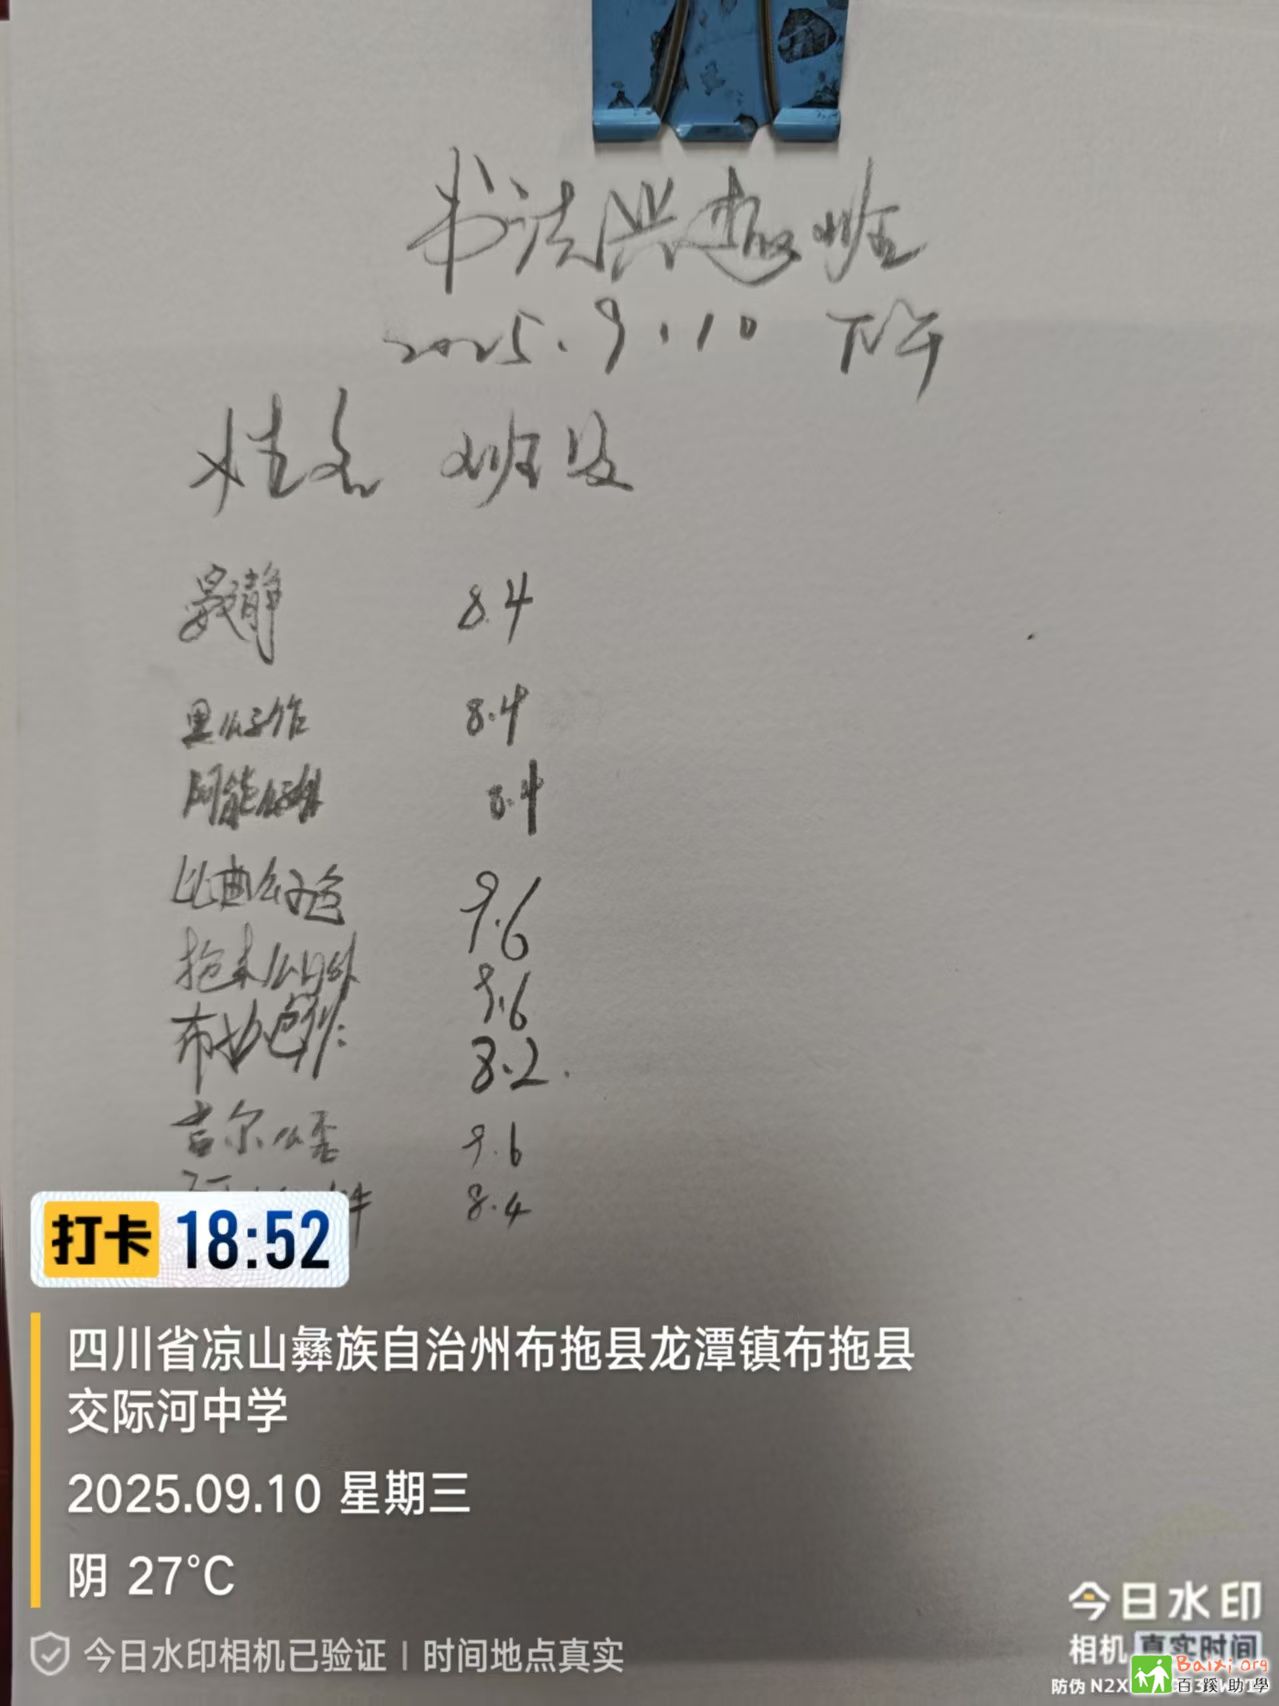 书法兴趣班
2025.9.10 下午
姓名 班级
晏静 8.4
8.4
阿能 8.4
比曲么色 9.6
9.6
布拖 8.2.
吉尔么 9.6
8.4
打卡 18:52
四川省凉山彝族自治州布拖县龙潭镇布拖县
交际河中学
2025.09.10 星期三
阴 27°C
今日水印相机已验证 | 时间地点真实
今日水印
相机 真实时间
防伪 N2X
Baixi.org
百蹊助學